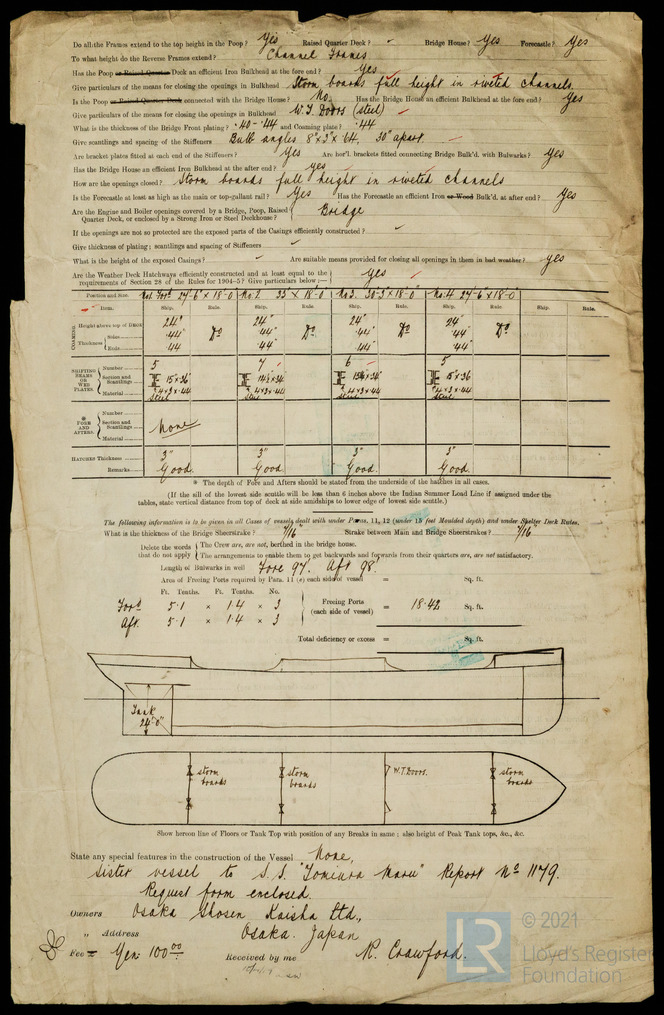 Do all the Frames extend to the top height in the Poop? Yes Raised Quarter Deck? Bridge House? Yes Forecastle? Yes
To what height do the Reverse Frames extend? Channel Frames
Has the Poop or Raised Quarter Deck an efficient Iron Bulkhead at the fore end? Yes
Give particulars of the means for closing the openings in Bulkhead Storm boards full height in riveted channels.
Is the Poop or Raised Quarter Deck connected with the Bridge House? No. Has the Bridge House an efficient Bulkhead at the fore end? Yes
Give particulars of the means for closing the openings in Bulkhead W.T. Doors (steel)
What is the thickness of the Bridge Front plating? .40-.44 and Coaming plate? .44
Give scantlings and spacing of the Stiffeners Bulb angles 8"x3"x.64, 30" apart.
Are bracket plates fitted at each end of the Stiffeners? Yes Are hor'l brackets fitted connecting Bridge Bulk'd. with Bulwarks? Yes
Has the Bridge House an efficient Iron Bulkhead at the after end? yes
How are the openings closed? Storm boards full height in riveted channels
Is the Forecastle at least as high as the main or top-gallant rail? Yes Has the Forecastle an efficient Iron or Wood Bulk'd. at after end? Yes
Are the Engine and Boiler openings covered by a Bridge, Poop, Raised Quarter Deck, or enclosed by a Strong Iron or Steel Deckhouse? Bridge
If the openings are not so protected are the exposed parts of the Casings efficiently constructed?
Give thickness of plating; scantlings and spacing of Stiffeners
What is the height of the exposed Casings? Are suitable means provided for closing all openings in them in bad weather? yes
Are the Weather Deck Hatchways efficiently constructed and at least equal to the
requirements of Section 28 of the Rules for 1904-5? Give particulars below:— yes
Position and Size. No 1. For'd 27'-6" x 18'-0 No 2. 33' x 18'-0 No 3. 30'-3" x 18'-0 No 4. 27'-6" x 18'-0
Item. Ship. Rule. Ship. Rule. Ship. Rule. Ship. Rule. Ship. Rule.
COAMING Height above top of DECK 24" 24" 24" 24"
Thickness Sides .44" Do .44" Do .44" Do .44" Do
Ends .44 .44" .44" .44"
SHIFTING BEAMS OR WEB PLATES. Number 5 7 6 5
Section and Scantlings
Material Steel Steel Steel Steel
* FORE AND AFTERS. Number
Section and Scantlings None
Material
HATCHES Thickness 3" 3" 3" 3"
Remarks Good Good Good. Good.
* The depth of Fore and Afters should be stated from the underside of the hatches in all cases.
(If the sill of the lowest side scuttle will be less than 6 inches above the Indian Summer Load Line if assigned under the
tables, state vertical distance from top of deck at side amidships to lower edge of lowest side scuttle.)
The following information is to be given in all Cases of vessels dealt with under Paras. 11, 12 (under 15 feet Moulded depth) and under Shelter Deck Rules.
What is the thickness of the Bridge Sheerstrake? 7/16" Strake between Main and Bridge Sheerstrakes? 7/16"
Delete the words that do not apply
The Crew are, are not, berthed in the bridge house.
The arrangements to enable them to get backwards and forwards from their quarters are, are not satisfactory.
Length of Bulwarks in well Fore 97. Aft 98'
Area of Freeing Ports required by Para. 11 (e) each side of vessel = Sq. ft.
Ft. Tenths. Ft. Tenths. No.
For'd 5.1 x 1.4 x 3
Freeing Ports (each side of vessel) = 18.42 Sq. ft.
Aft. 5.1 x 1.4 x 3
Total deficiency or excess = Sq. ft.
Tank
24'-0"
storm boards
storm boards
W.T. Doors.
storm boards
Show hereon line of Floors or Tank Top with position of any Breaks in same; also height of Peak Tank tops, &c., &c.
State any special features in the construction of the Vessel None,
sister vessel to S.S. "Tomiura Maru" Report No 1179.
Request form enclosed.
Owners Osaka Shosen Kaisha Ltd.,
" Address Osaka. Japan
Fee = Yen. 100.00
Received by me R. Crawford.
LR © 2021
Lloyd's Register
Foundation